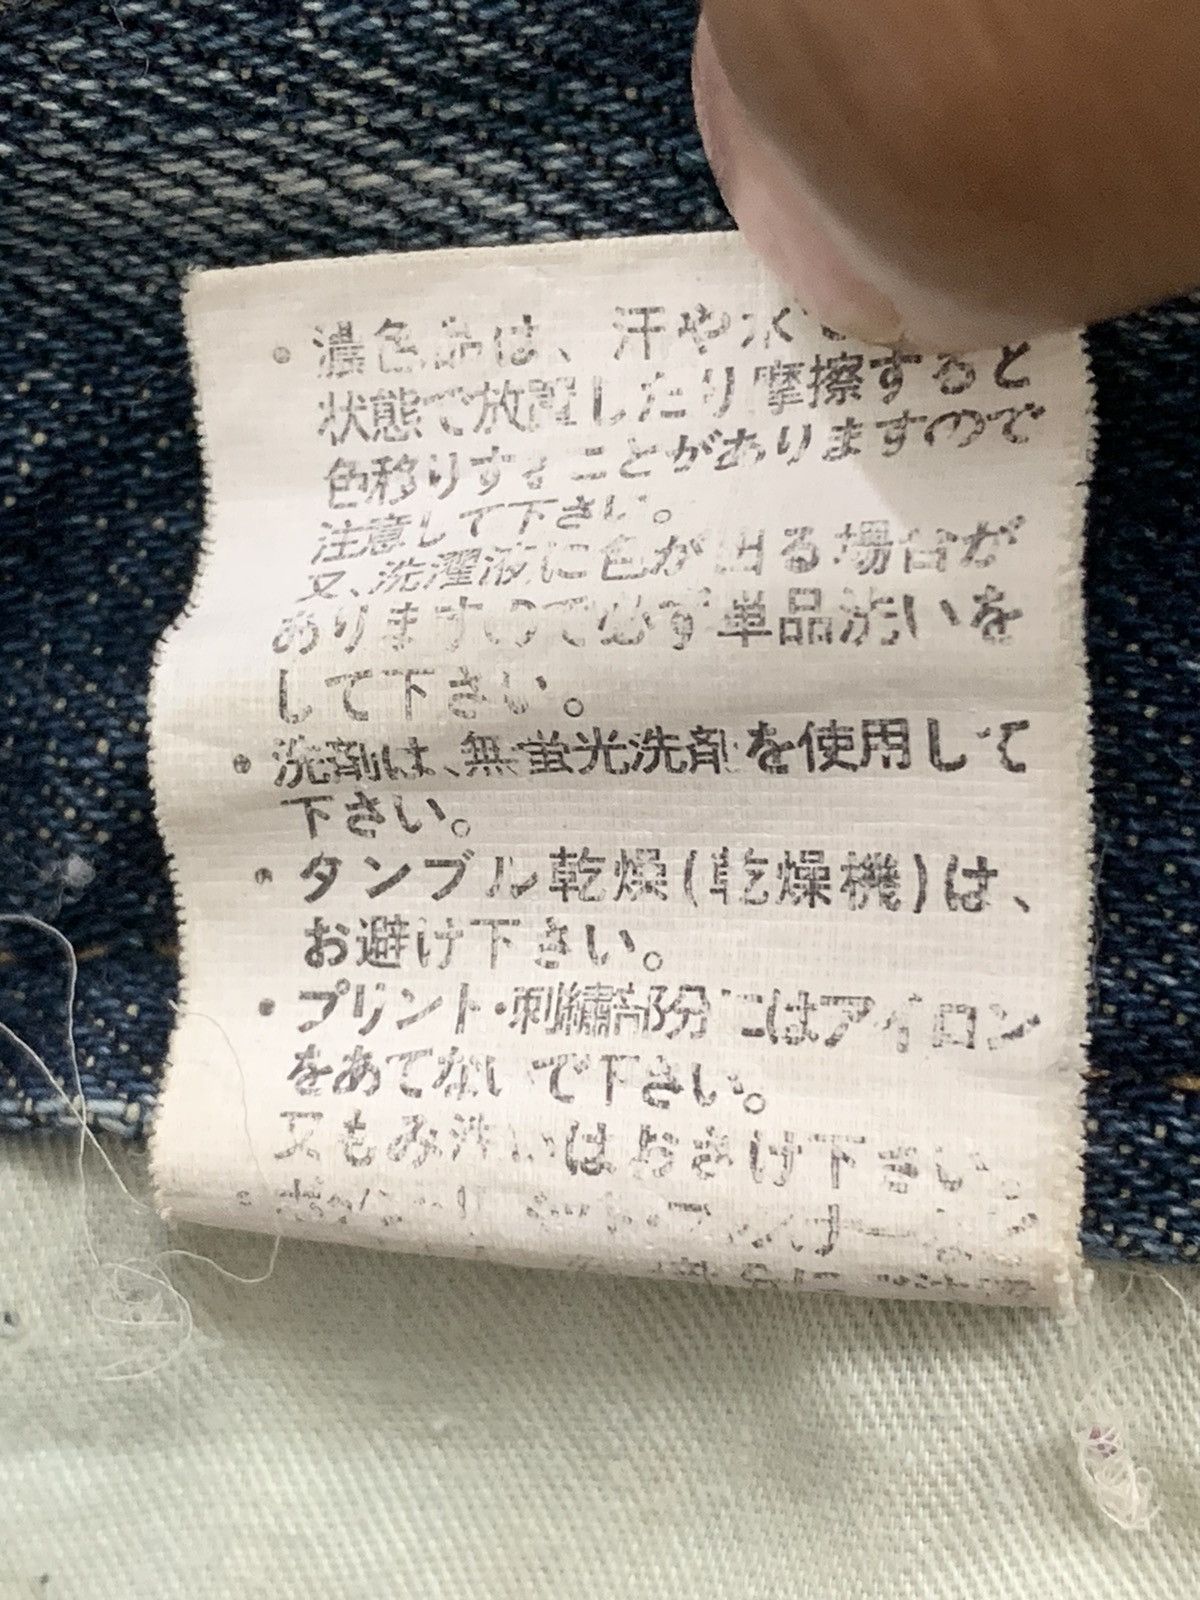 ・濃色品は、汗や水で
状態で放置したり摩擦すると
色移りすることがありますので
注意して下さい。
又、洗濯液に色が出る場合が
ありますので必ず単品洗いを
して下さい。
・洗剤は、無蛍光洗剤を使用して
下さい。
・タンブル乾燥(乾燥機)は、
お避け下さい。
・プリント・刺繍部分にはアイロン
をあてないで下さい。
又もみ洗いはおさけ下さい